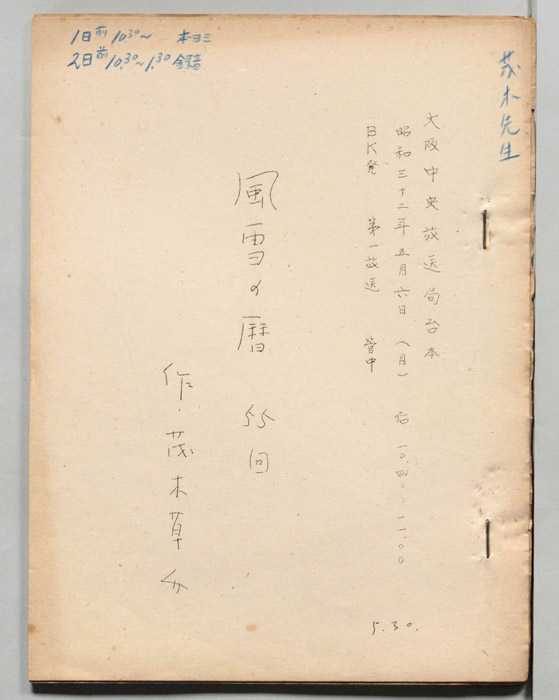 1日前 10.30~ 本ヨミ
2日前 10.30~1.30 録音
茂木先生
大阪中央放送局台本
昭和三十二年五月六日(月) 后一〇.四〇~一一.〇〇
BK発 第一放送 管中
風雪の暦 55回
作・茂木草介
5.30.